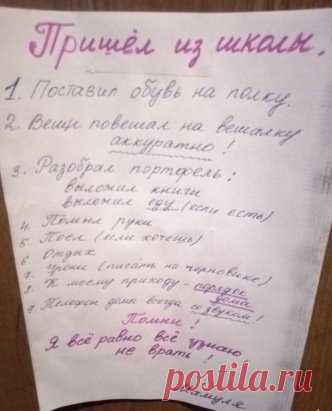 Пришёл из школы,
1. Поставил обувь на полку.
2. Вещи повешал на вешалку
аккуратно!
3. Разобрал портфель:
выложил книги
выложил еду (если есть)
4. Помыл руки
5. Поел (если хочешь)
6. Отдых
7. Уроки (писать на черновике)
8. К моему приходу - порядок
дома
9. Телефон дома всегда со звуком!
Помни!
Я всё равно всё узнаю
не врать!
Мамуля
posta-la.ru